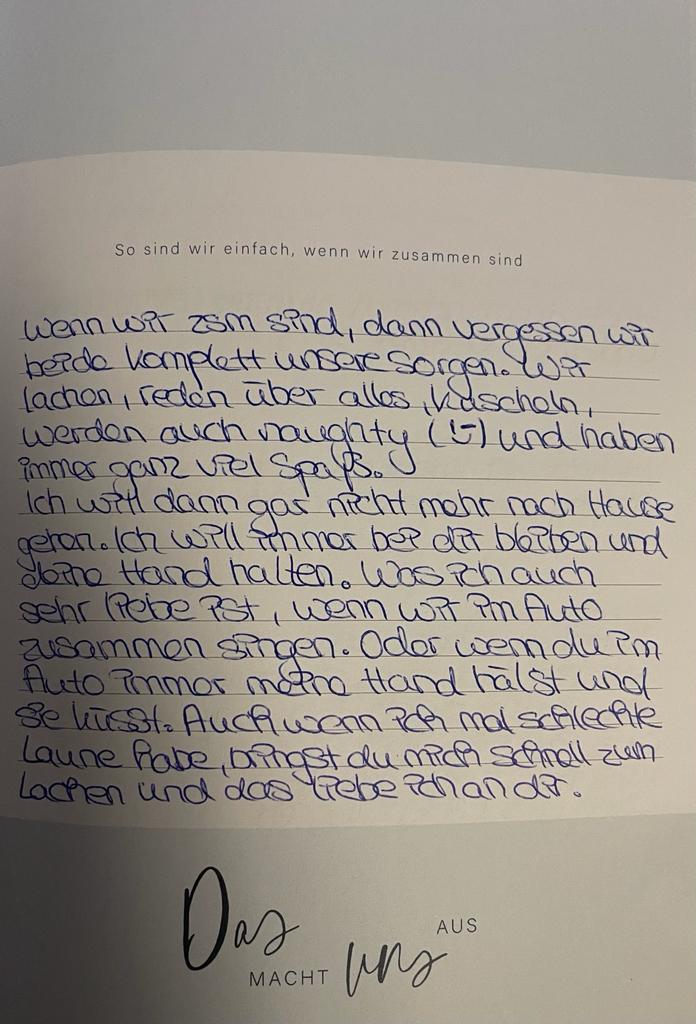 So sind wir einfach, wenn wir zusammen sind
wenn wir zsm sind, dann vergessen wir
beide komplett unsere Sorgen. Wir
lachen, reden über alles, kuscheln,
werden auch naughty (:-) und haben
immer ganz viel Spaß.
Ich will dann gar nicht mehr nach Hause
gehen. Ich will immer bei dir bleiben und
deine Hand halten. Was ich auch
sehr liebe ist, wenn wir im Auto
zusammen singen. Oder wenn du im
Auto immer meine Hand hälst und
sie küsst. Auch wenn ich mal schlechte
Laune habe, bringst du mich schnell zum
Lachen und das liebe ich an dir.
Das
MACHT uns AUS